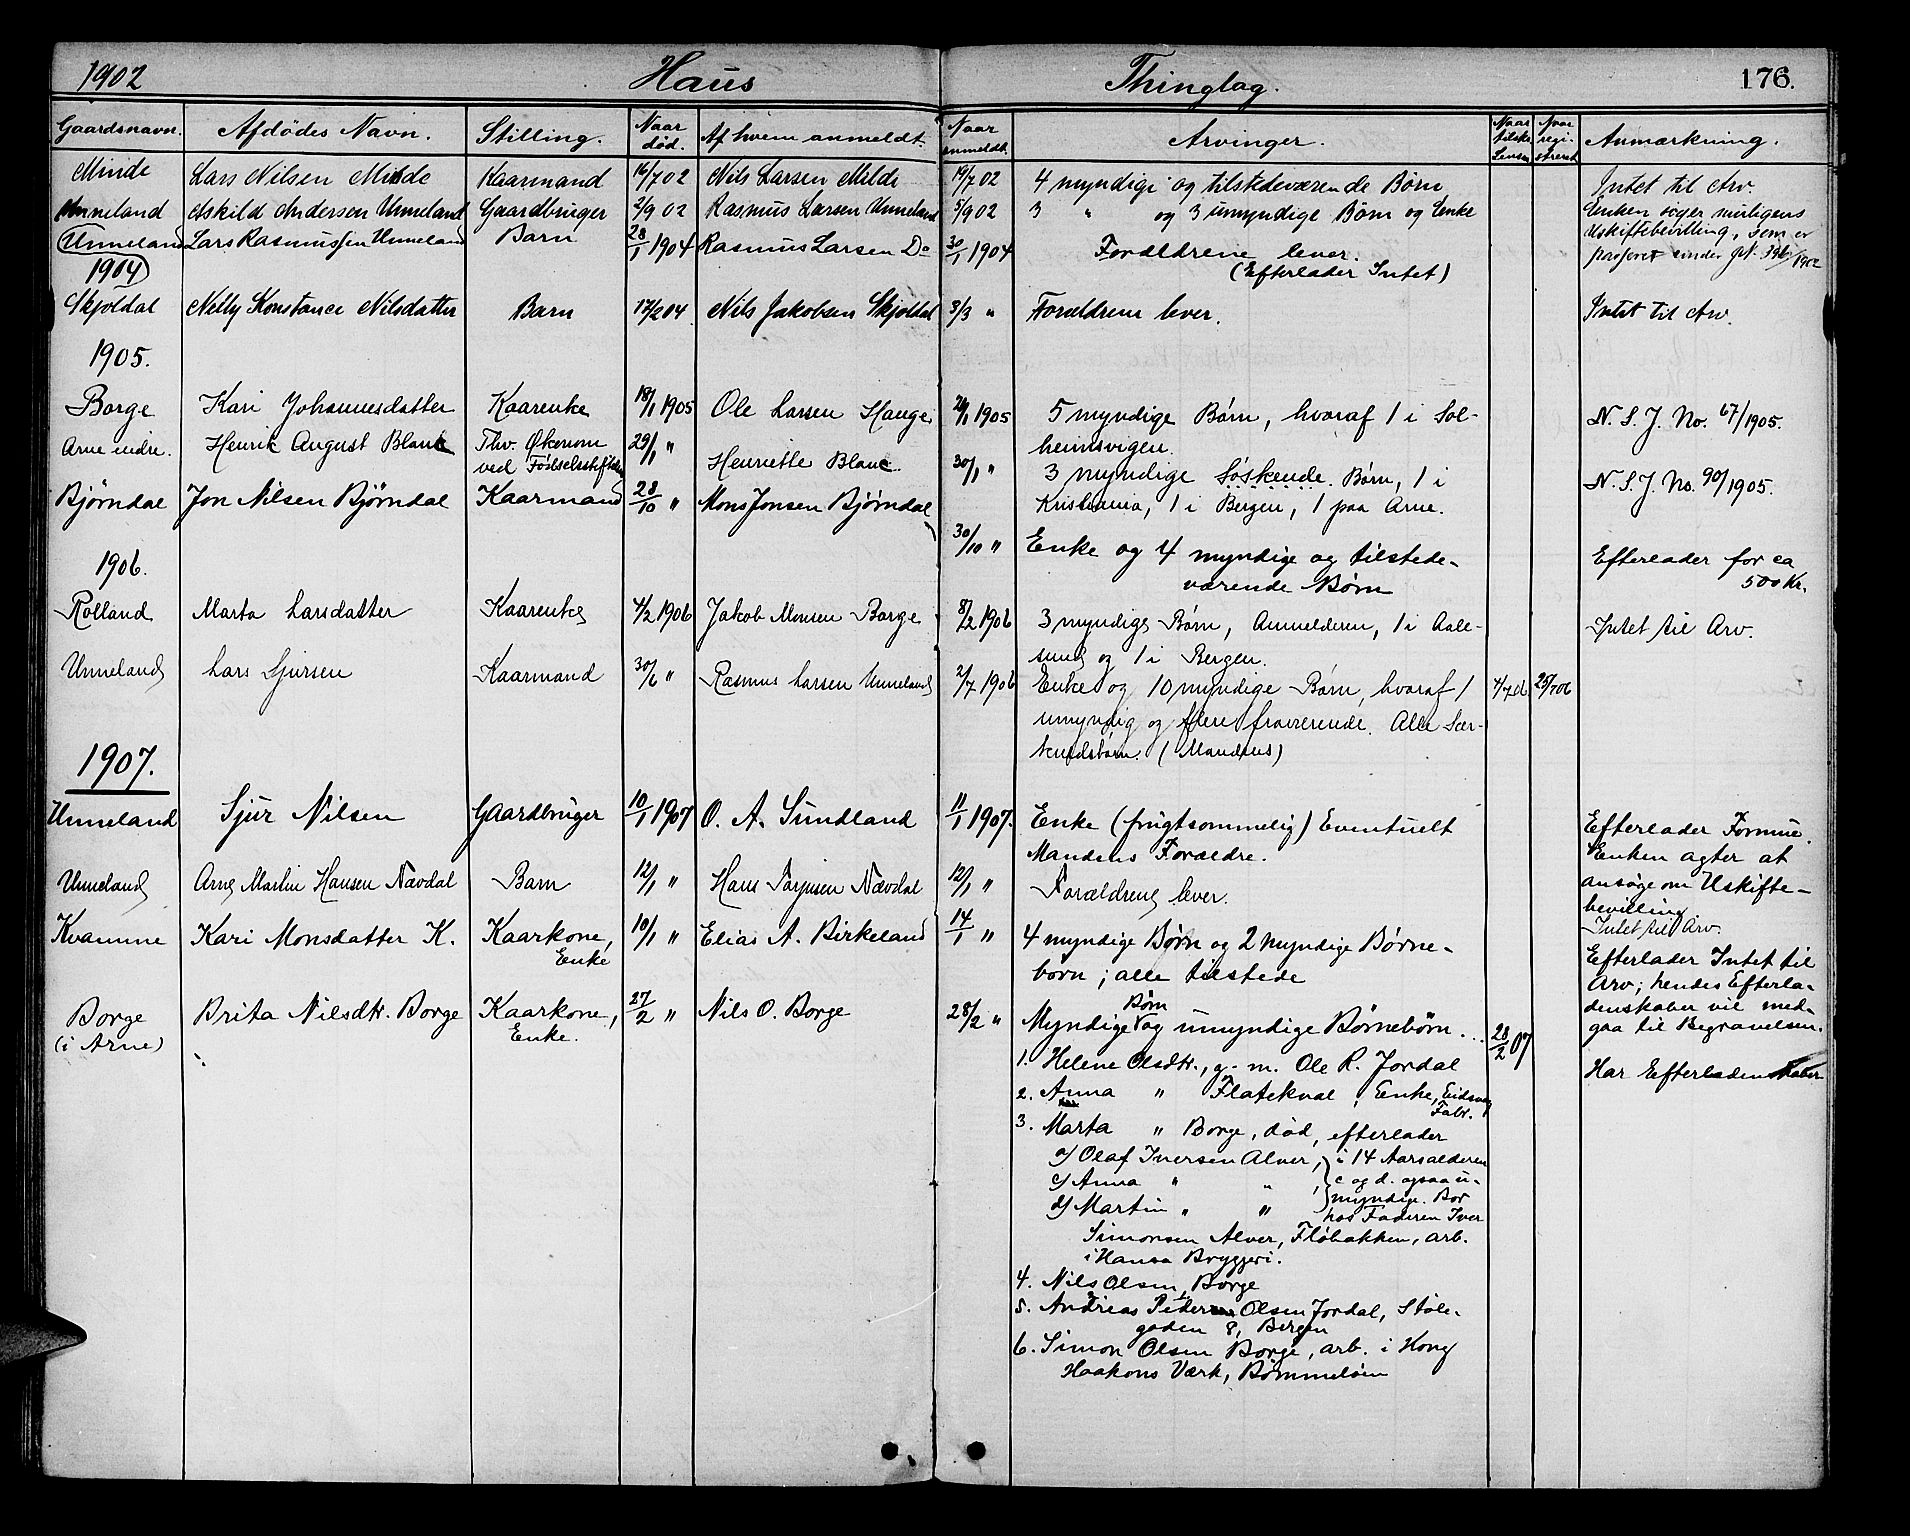 1902 Haus Thinglag. 176.
Gaardsnavn. Afdödes Navn. Stilling. Naar död. Af hvem anmeldt. Naar anmeldt. Arvinger. Naar tilskr. Lensm. Naar regi- streret Anmærkning.
Minde Lars Nilsen Milde Kaarmand 16/7 02 Nils Larsen Milde 19/7 02 4 myndige og tilstedeværende Børn Intet til Arv.
Unneland Askild Andersen Unneland Gaardbruger 2/9 02 Rasmus Larsen Unneland 5/9 02 3 " og 3 umyndige Børn og Enke Enken søger
Uskiftebevilling, som er
Unneland Lars Rasmussen Unneland Barn 28/1 1904 Rasmus Larsen Do 30/1 1904 Forældrene lever. under
1904 (Efterlader Intet)
Skjoldal Nelly Konstance Nilsdatter Barn 17/2 04 Nils Jakobsen Skjoldal 3/3 " Forældrene lever. Intet til Arv.
1905.
Borge Kari Johannesdatter Kaarenke 18/1 1905 Ole Larsen Hauge 1905 5 myndige Børn, hvoraf 1 i Sol-
heimsvigen. N. S. J. No. 67/1905.
Arne indre. Henrik August Blanc Fhv. Økonom
ved Fødselsstiftelsen 29/1 " Henriette Blanc. 30/1 " 3 myndige Söskende. Børn, 1 i
Kristiania, 1 i Bergen, 1 paa Arne. N. S. J. No. 90/1905.
Bjørndal Jon Nilsen Bjørndal Kaarmand 28/10 " Mons Jonsen Bjørndal 30/10 " Enke og 4 myndige og tilstede-
værende Børn Efterlader for ca
500 Kr.
1906.
Rolland Marta Larsdatter Kaarenke 4/2 1906 Jakob Monsen Borge 8/2 1906 3 myndige Børn, Anmelderen, 1 i Aale-
sund og 1 i Bergen. Intet til Arv.
Unneland Lars Sjursen Kaarmand 30/6 " Rasmus Larsen Unneland 2/7 1906 Enke og 10 myndige Børn, hvoraf 1 4/7 06 25/7 06
umyndig og flere fraværende. Alle Sær-
kuldsbørn. (Mandens)
1907.
Unneland Sjur Nilsen Gaardbruger 10/1 1907 O. A. Sundland 11/1 1907. Enke (frugtsommelig) Eventuelt
Mandens Forældre. Efterlader Formue.
Enken agter at
ansøge om Uskifte-
bevilling
Unneland Arne Martin Hansen Nævdal Barn 12/1 " Hans Nævdal 12/1 " Forældrene lever. Intet til Arv.
Kvamme Kari Monsdatter K. Kaarkone,
Enke 10/1 " Elias A. Birkeland 14/1 " 4 myndige Børn og 2 myndige Børne-
børn; alle tilstede Efterlader Intet til
Arv; hendes Efterla-
denskaber vil med-
gaa til Begravelsen.
Borge
(i Arne) Brita Nilsdtr. Borge Kaarkone,
Enke. 27/2 " Nils O. Borge 28/2 " Myndige Børn og umyndige Børnebørn... 28/2 07 Har Efterladenskaber
1. Helene Olsdtr., g. m. Ole R. Jordal
2. Anna " Flatekval, Enke, Eidsvåg
Fabr.
3. Marta " Borge, død, efterlader
a) Olaf Iversen Alver, i 14 Aarsalderen
c) Anna " " , c og d. ogsaa u-
d) Martin " " myndige. Bor
hos Faderen Iver
Simonsen Alver, Fløbakken, arb.
i Hansa Bryggeri.
4. Nils Olsen Borge
5. Andreas Peder Olsen Jordal, Støle-
gaden 8, Bergen
6. Simon Olsen Borge, arb. i Kong
Haakons Værk, Bømmeløen